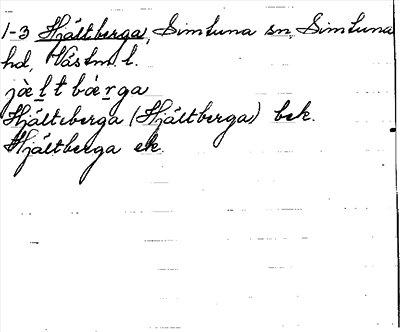 1-3 Hjältberga, Simtuna sn, Simtuna
hd, Västm. l.
jæ̀l t bæ̀rga
Hjältberga (Hjältberga) bek.
Hjältberga ek.